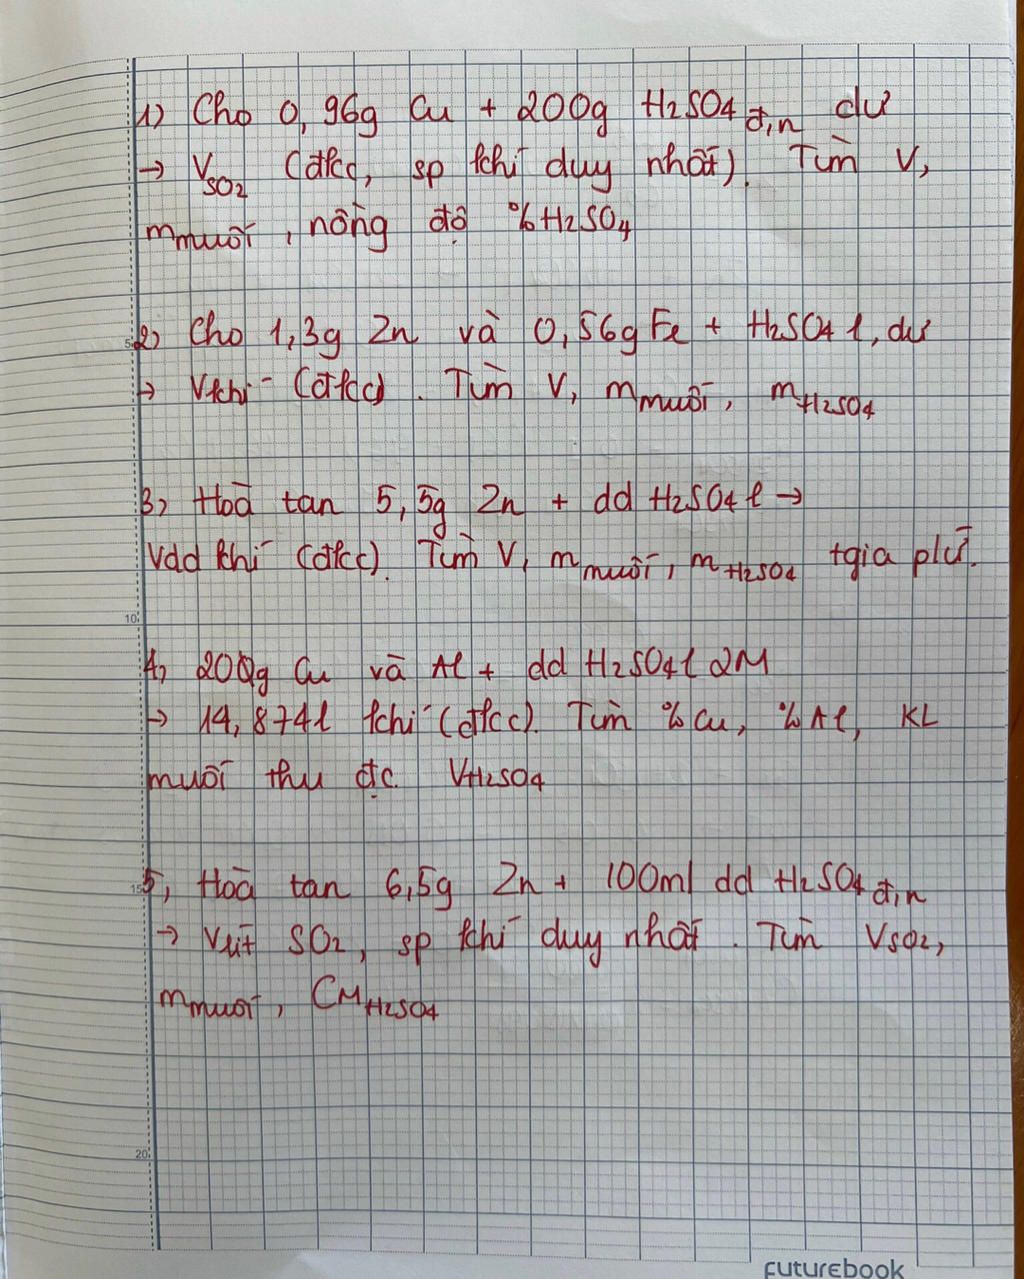 1) Cho 0,96g Cu + 200g H2SO4 đ,n dư
→ VSO2 (đkc, sp khí duy nhất). Tìm V,
mmuối, nồng độ %H2SO4
5
2) Cho 1,3g Zn và 0,56g Fe + H2SO4 l, dư
→ Vkhí (đkc). Tìm V, mmuối, mH2SO4
3) Hoà tan 5,5g Zn + dd H2SO4 l →
Vdd khí (đkc). Tìm V, mmuối, mH2SO4 tgia pứ.
10
4, 200g Cu và Al + dd H2SO4 l 2M
→ 14,874l khí (đkc). Tìm %Cu, %Al, KL
muối thu đc. VH2SO4
15
5, Hoà tan 6,5g Zn + 100ml dd H2SO4 đ,n
→ Vlít SO2, sp khí duy nhất. Tìm VSO2,
mmuối, CMH2SO4
20
FUTUREBOOK